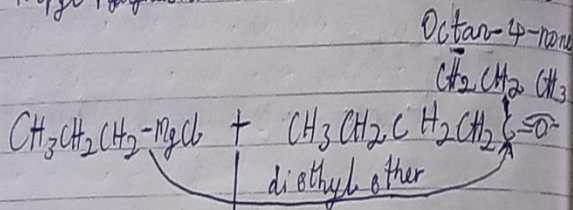 Octan-4-none
CH2 CH2 CH3
CH3CH2CH2-MgCl + CH3 CH2 C H2 CH2 C=O
diethyl ether